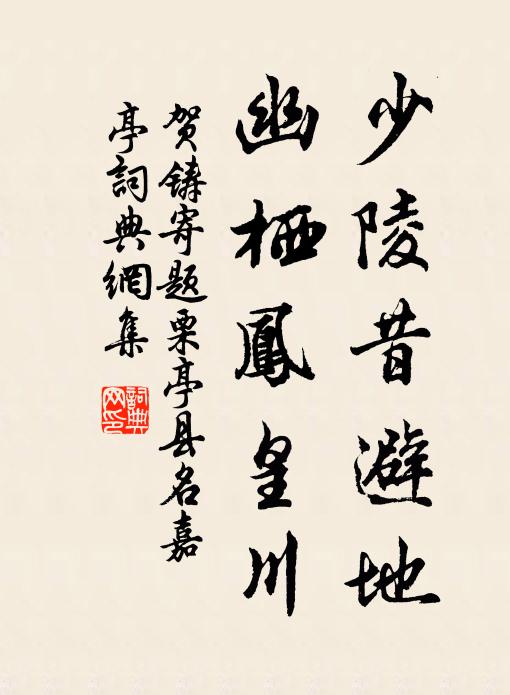 少陵昔避地
幽栖鳳皇川
贺鑄寄题栗亭县名嘉
亭詞典網集
詞典
网印